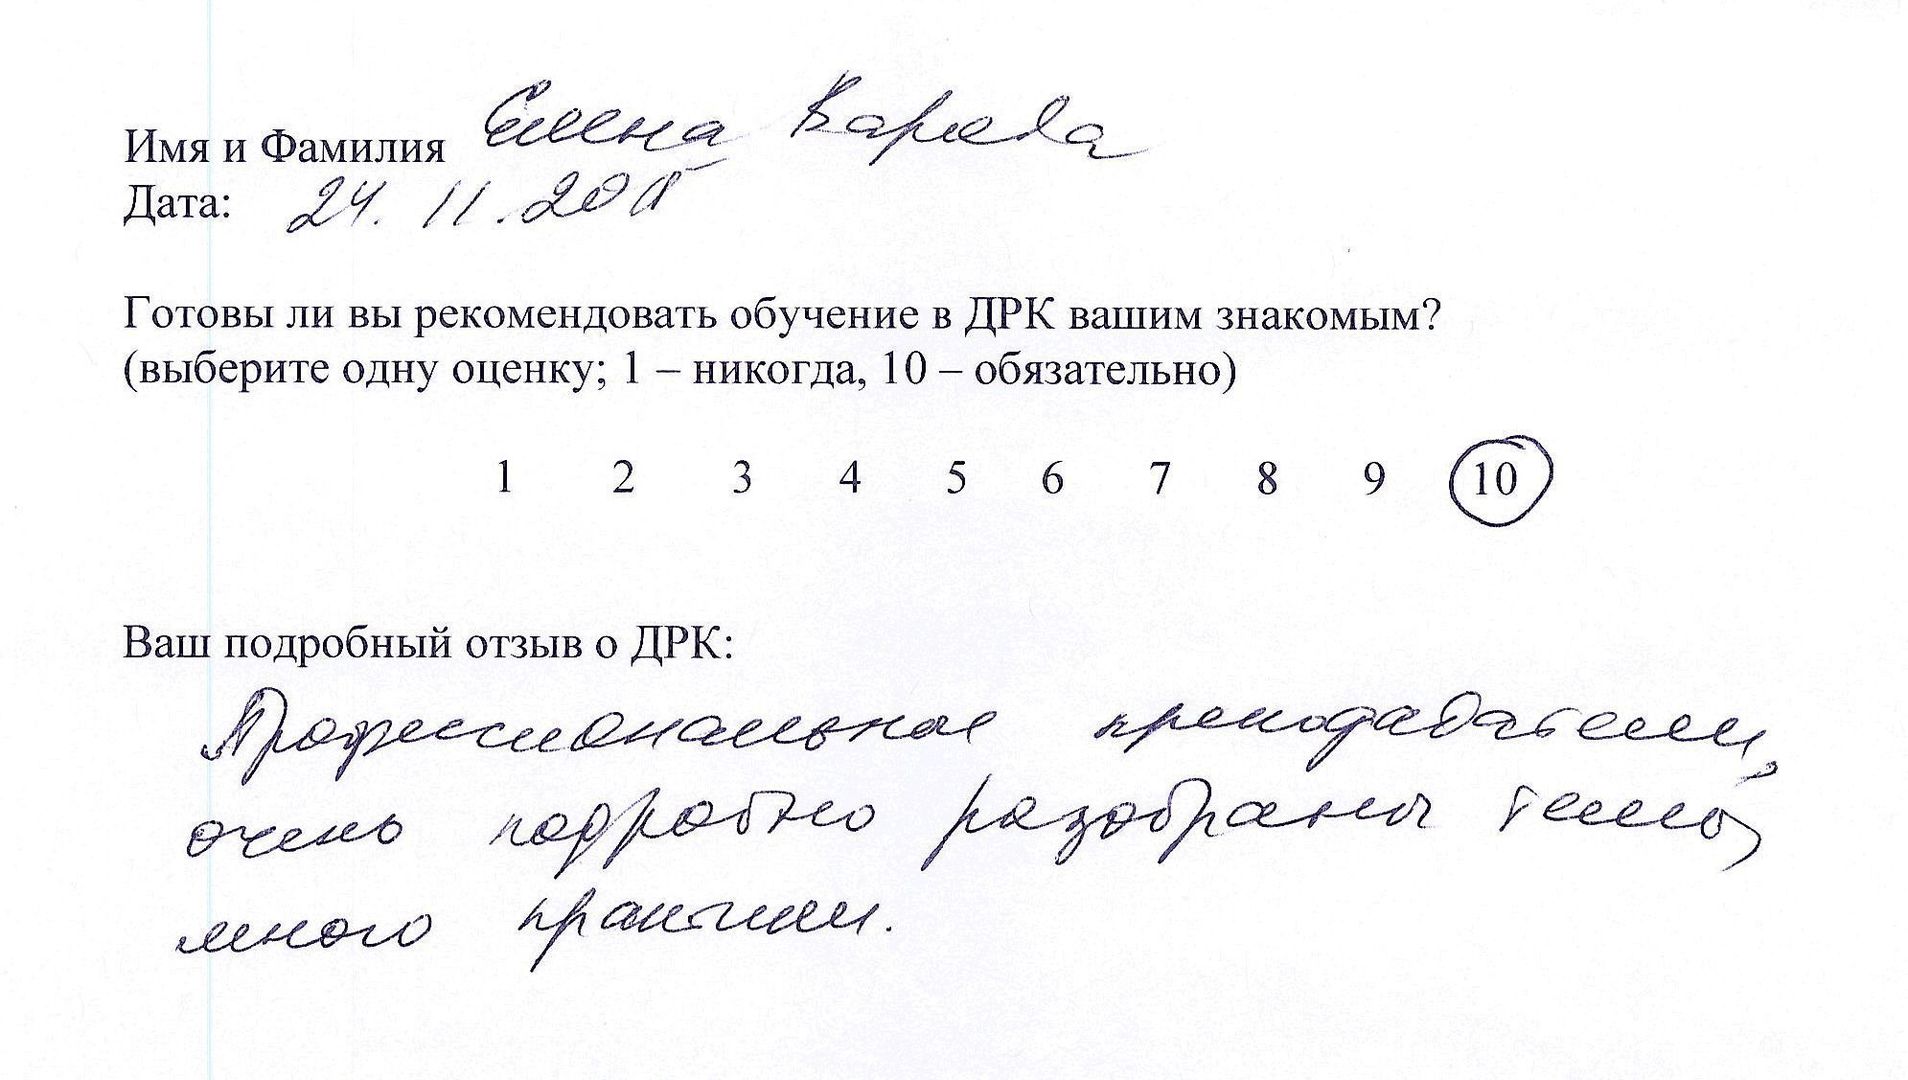 Имя и Фамилия Елена
Дата: 24.11.2015
Готовы ли вы рекомендовать обучение в ДРК вашим знакомым?
(выберите одну оценку; 1 – никогда, 10 – обязательно)
1 2 3 4 5 6 7 8 9 10
Ваш подробный отзыв о ДРК:
Профессиональные преподаватели,
очень подробно разобраны темы,
много практики.